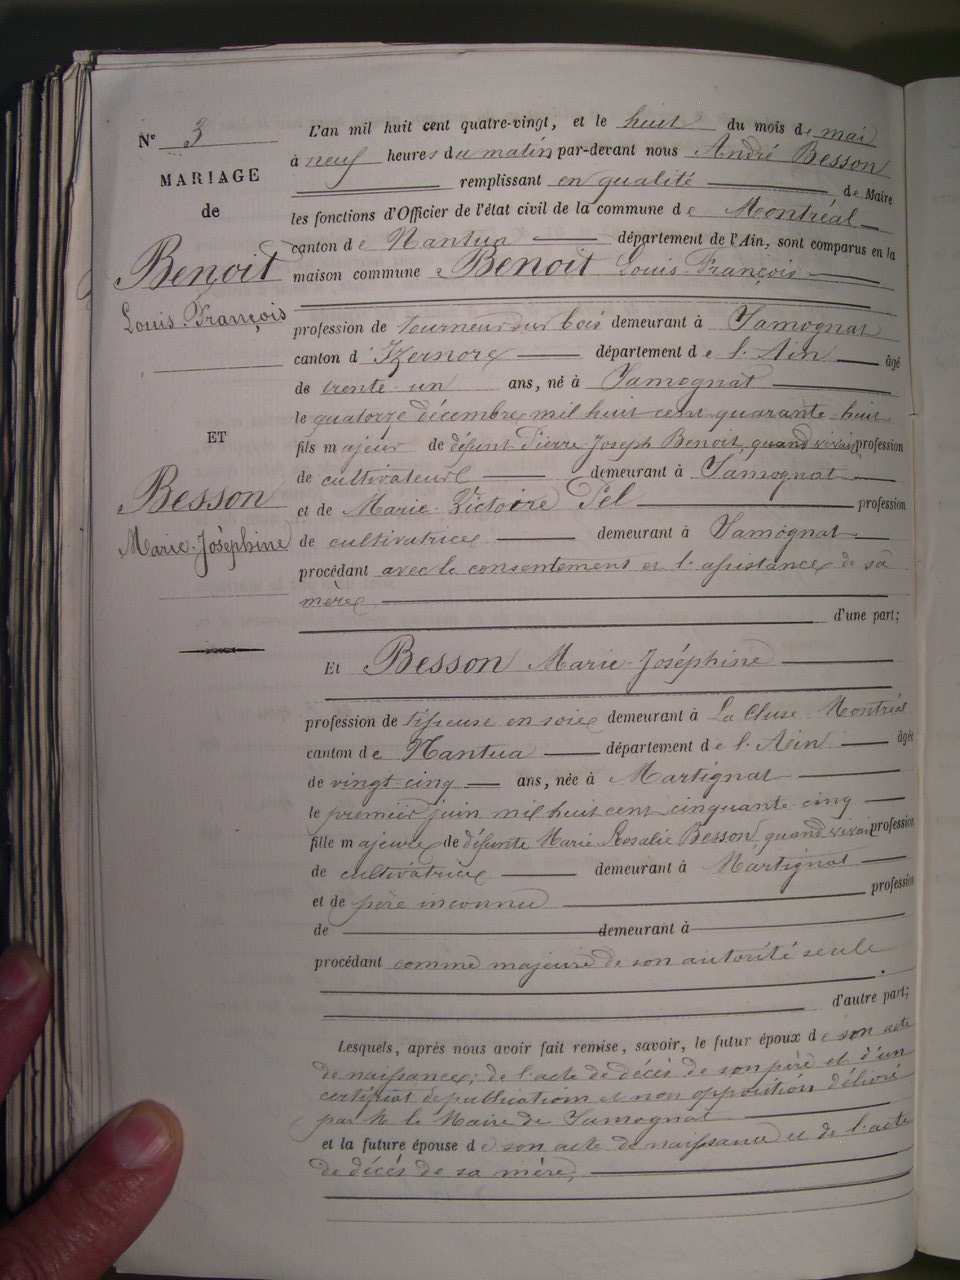 N° 3
MARIAGE
de
Benoit
Louis-François
ET
Besson
Marie-Joséphine
L'an mil huit cent quatre-vingt, et le huit du mois de mai
à neuf heures du matin par-devant nous André Besson
remplissant en qualité de Maire
les fonctions d'Officier de l'état civil de la commune de Montréal
canton de Nantua département de l'Ain, sont comparus en la
maison commune Benoit Louis-François
profession de tourneur sur bois demeurant à Samognat
canton d'Izernore département de l'Ain âgé
de trente-un ans, né à Samognat
le quatorze décembre mil huit cent quarante-huit
fils majeur de défunt Pierre-Joseph Benoit, quand vivait profession
de cultivateur demeurant à Samognat
et de Marie-Victoire Pel profession
de cultivatrice demeurant à Samognat
procédant avec le consentement et l'assistance de sa
mère
d'une part;
Et Besson Marie-Joséphine
profession de tisseuse en soie demeurant à La Cluse Montréal
canton de Nantua département de l'Ain âgée
de vingt-cinq ans, née à Martignat
le premier juin mil huit cent cinquante-cinq
fille majeure de défunte Marie Rosalie Besson, quand vivait profession
de cultivatrice demeurant à Martignat
et de père inconnu profession
de demeurant à
procédant comme majeure de son autorité seule
d'autre part;
Lesquels, après nous avoir fait remise, savoir, le futur époux de son acte
de naissance; de l'acte de décès de son père et d'un
certificat de publication et non opposition délivré
par M. le Maire de Samognat
et la future épouse de son acte de naissance et de l'acte
de décès de sa mère,